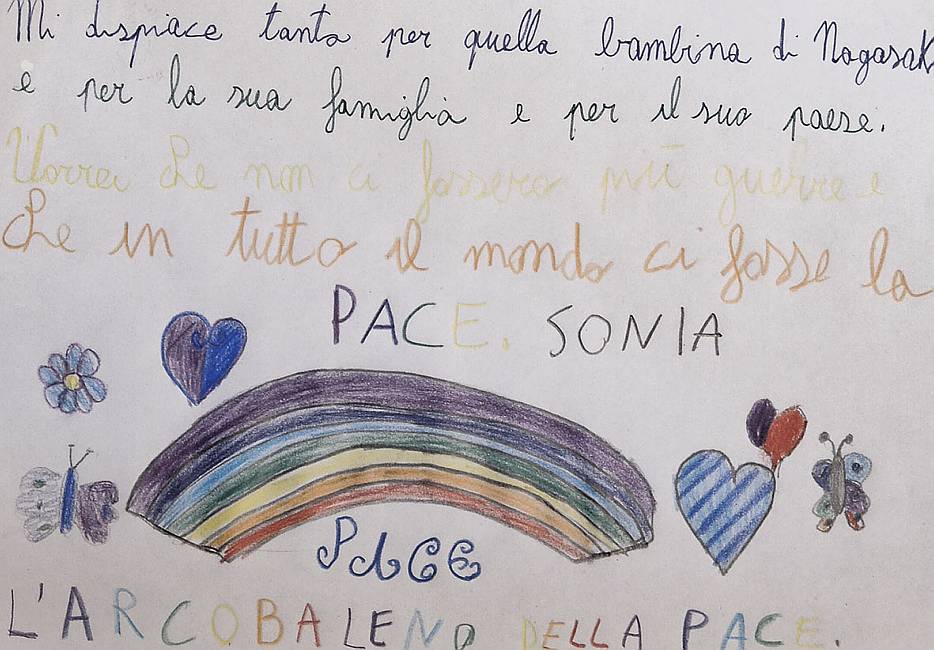 Mi dispiace tanto per quella bambina di Nagasak
e per la sua famiglia e per il suo paese.
Vorrei che non ci fossero più guerre e
che in tutto il mondo ci fosse la
PACE. SONIA
PACE
L'ARCOBALENO DELLA PACE.